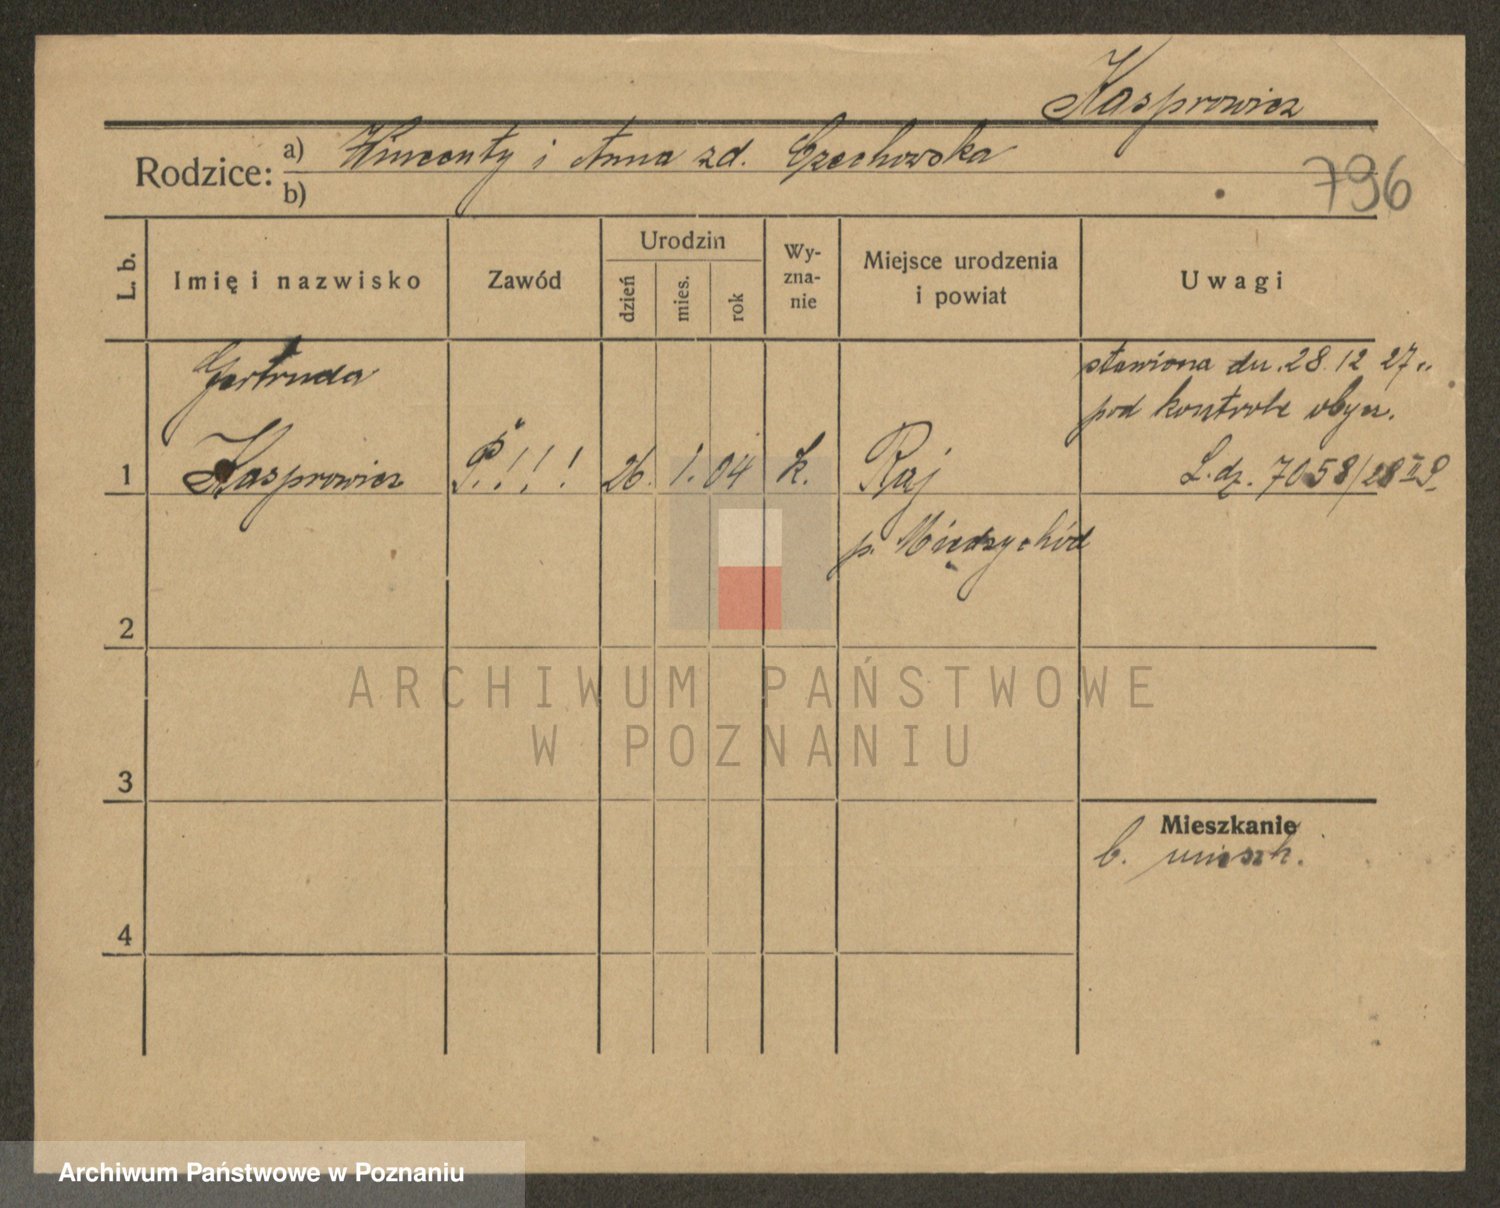 Kasprowicz
Rodzice: a) Wincenty i Anna zd. Czechowska
b)
796
L. b.
Imię i nazwisko
Zawód
Urodzin
dzień
mies.
rok
Wy-
zna-
nie
Miejsce urodzenia
i powiat
Uwagi
Gertruda
stawiona dn. 28 12 27 ..
pod kontrolę obycz.
1 Kasprowicz P. ! ! ! 26. 1. 04 k. Raj L. dz. 7058/28 II P.
p. Międzychód
2
3
Mieszkanie
b. miesz.
4
ARCHIWUM PAŃSTWOWE
W POZNANIU
Archiwum Państwowe w Poznaniu